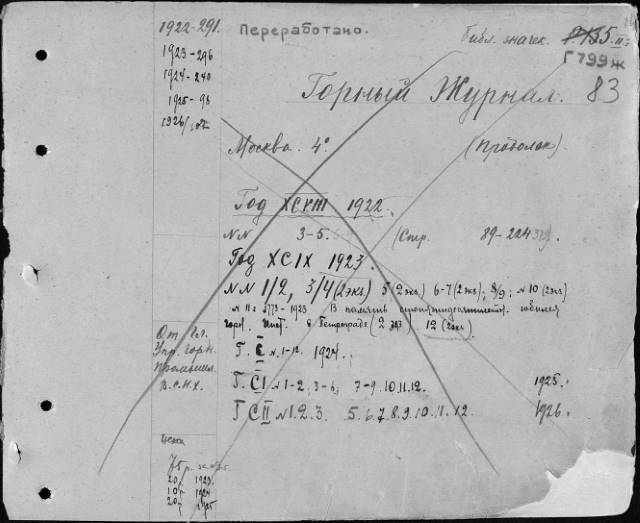 1922-291.
1923-296
1924-240
1925-98
1926/
От Гл.
Упр. горн.
Промышл.
В.С.Н.Х.
Цена
20р 1923
10р 1924
20р 1925
Переработано.
Библ. значек.
Г799ж
83
Горный Журнал.
Москва. 4°.
(Продолж).
Год XCVIII 1922.
NN 3-5. (Стр. 89-224
Год XCIX 1923.
NN 1/2, 3/4 (2экз) 5 (2экз) 6-7 (2экз); 8/9; N 10 (2экз)
N 11: 1773-1923 В память юбилея
горн. Инст. в Петрограде (2 экз) 12 (2экз)
Т. C N 1-12. 1924.
Т. CI N 1-2, 3-6, 7-9. 10. 11. 12. 1925.
Т CII N 1. 2. 3. 5. 6. 7. 8. 9. 10. 11. 12. 1926.